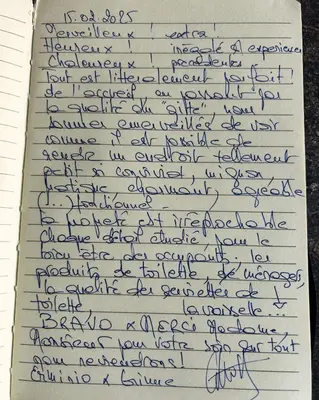 15.02.2025
Merveilleux! extra!
Heureux! inégalé & experience
Chaleureux! précédentes
Tout est littéralement parfait!
de l'accueil en passant par
la qualité du "gîte", nous
sommes émerveillés de voir
comme il est possible de
rendre un endroit tellement
petit si convivial, mignon,
rustique charmant, agréable
(... fonctionnel...
la propreté est irréprochable
chaque détail étudié, pour le
bien être des occupants, les
produits de toilette, de ménages,
la qualité des serviettes de
toilette, la vaisselle...
BRAVO & MERCI Madame,
Monsieur pour votre soin sur tout
nous reviendrons!
Erminio &